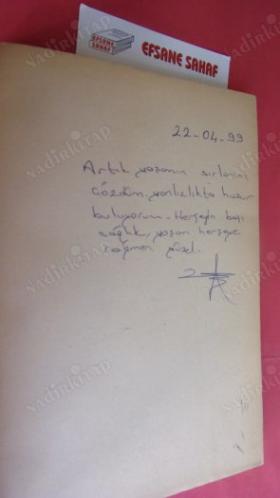 EFSANE SAHAF
EFSANE
SAHAF
22-04.99
Artık yaşamın sırlarını
Çözdüm, yalnızlıkta huzur
buluyorum. Herşeyin başı
sağlık, yaşam herşeye
rağmen güzel.